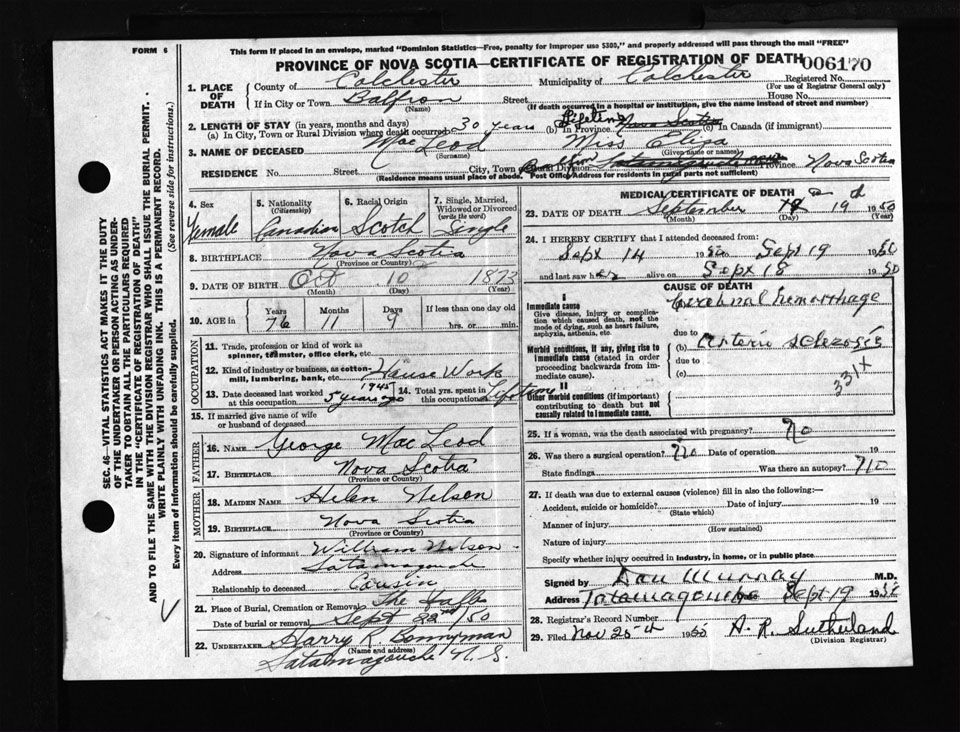 FORM 6
This form if placed in an envelope, marked "Dominion Statistics—Free, penalty for improper use $300," and properly addressed will pass through the mail "FREE"
PROVINCE OF NOVA SCOTIA—CERTIFICATE OF REGISTRATION OF DEATH
006170
1. PLACE OF DEATH
County of Colchester Municipality of Colchester Registered No.
(For use of Registrar General only)
If in City or Town Balfron Street House No.
(Name) (If death occurred in a hospital or institution, give the name instead of street and number)
2. LENGTH OF STAY (in years, months and days)
(a) In City, Town or Rural Division where death occurred 30 years (b) In Province Lifetime Nova Scotia (c) In Canada (if immigrant)
3. NAME OF DECEASED MacLeod Miss Eliza
(Surname) (Given name or names)
RESIDENCE No. Street City, Town or Rural Division Balfron Tatamagouche Province Nova Scotia
(Residence means usual place of abode. Post Office Address for residents in rural parts not sufficient)
4. Sex
Female
5. Nationality
(Citizenship)
Canadian
6. Racial Origin
Scotch
7. Single, Married, Widowed or Divorced
(write the word)
Single
8. BIRTHPLACE Nova Scotia
(Province or Country)
9. DATE OF BIRTH Oct 10 1873
(Month) (Day) (Year)
10. AGE in Years Months Days If less than one day
76 11 9 hrs. or min.
OCCUPATION
11. Trade, profession or kind of work as spinner, teamster, office clerk, etc.
12. Kind of industry or business, as cotton-mill, lumbering, bank, etc. House Work
13. Date deceased last worked at this occupation 1945 5 years ago
14. Total yrs. spent in this occupation Lifetime
15. If married give name of wife or husband of deceased
FATHER
16. NAME George MacLeod
17. BIRTHPLACE Nova Scotia
(Province or Country)
MOTHER
18. MAIDEN NAME Helen Nelson
19. BIRTHPLACE Nova Scotia
(Province or Country)
20. Signature of informant William Nelson
Address Tatamagouche
Relationship to deceased Cousin
21. Place of Burial, Cremation or Removal The Falls
Date of burial or removal Sept 22nd/50
22. UNDERTAKER Harry R. Bonnyman
(Name and address)
Tatamagouche N.S.
MEDICAL CERTIFICATE OF DEATH
23. DATE OF DEATH September 19th 1950
(Month) (Day) (Year)
24. I HEREBY CERTIFY that I attended deceased from:
Sept 14 1950 to Sept 19 1950
and last saw her alive on Sept 18 1950
CAUSE OF DEATH
I
Immediate cause
Give disease, injury or complication which caused death, not the mode of dying, such as heart failure, asphyxia, asthenia, etc.
Cerebral hemorrhage
due to
Morbid conditions, if any, giving rise to immediate cause (stated in order proceeding backwards from immediate cause).
(b) Arterio sclerosis
due to
(c)
331X
II
Other morbid conditions (if important) contributing to death but not causally related to immediate cause.
25. If a woman, was the death associated with pregnancy? No
26. Was there a surgical operation? No Date of operation 19
State findings Was there an autopsy? No
27. If death was due to external causes (violence) fill in also the following:—
Accident, suicide or homicide? Date of injury 19
(State which)
Manner of injury
(How sustained)
Nature of injury
Specify whether injury occurred in industry, in home, or in public place
Signed by Dan Murray M.D.
Address Tatamagouche Sept 19 1950
28. Registrar's Record Number
29. Filed Nov 25th 1950 A. R. Sutherland
(Division Registrar)
SEC. 46—VITAL STATISTICS ACT MAKES IT THE DUTY
OF THE UNDERTAKER OR PERSON ACTING AS UNDER-
TAKER TO OBTAIN ALL THE PARTICULARS REQUIRED
IN THE "CERTIFICATE OF REGISTRATION OF DEATH"
AND TO FILE THE SAME WITH THE DIVISION REGISTRAR WHO SHALL ISSUE THE BURIAL PERMIT.
WRITE PLAINLY WITH UNFADING INK. THIS IS A PERMANENT RECORD.
Every item of information should be carefully supplied. (See reverse side for instructions.)